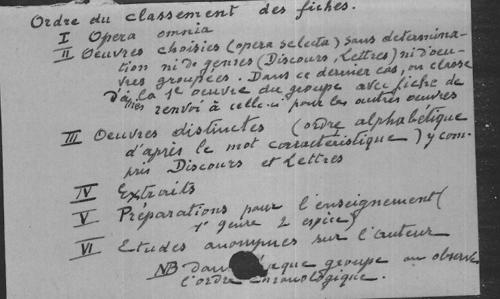 Ordre du classement des fiches.
I Opera omnia
II Oeuvres choisies (opera selecta) sans determina-
tion ni de genres (Discours, Lettres) ni d'oeu-
vres groupées. Dans ce dernier cas, on classe
à la 1e oeuvre du groupe avec fiche de
renvoi à celle-ci pour les autres oeuvres
III Oeuvres distinctes (ordre alphabétique
d'après le mot caractéristique) y com-
pris Discours et Lettres
IV Extraits
V Préparations pour l'enseignement (
1° genre 2 espèce)
VI Etudes anonymes sur l'auteur
NB dans groupe on observe
l'ordre chronologique.